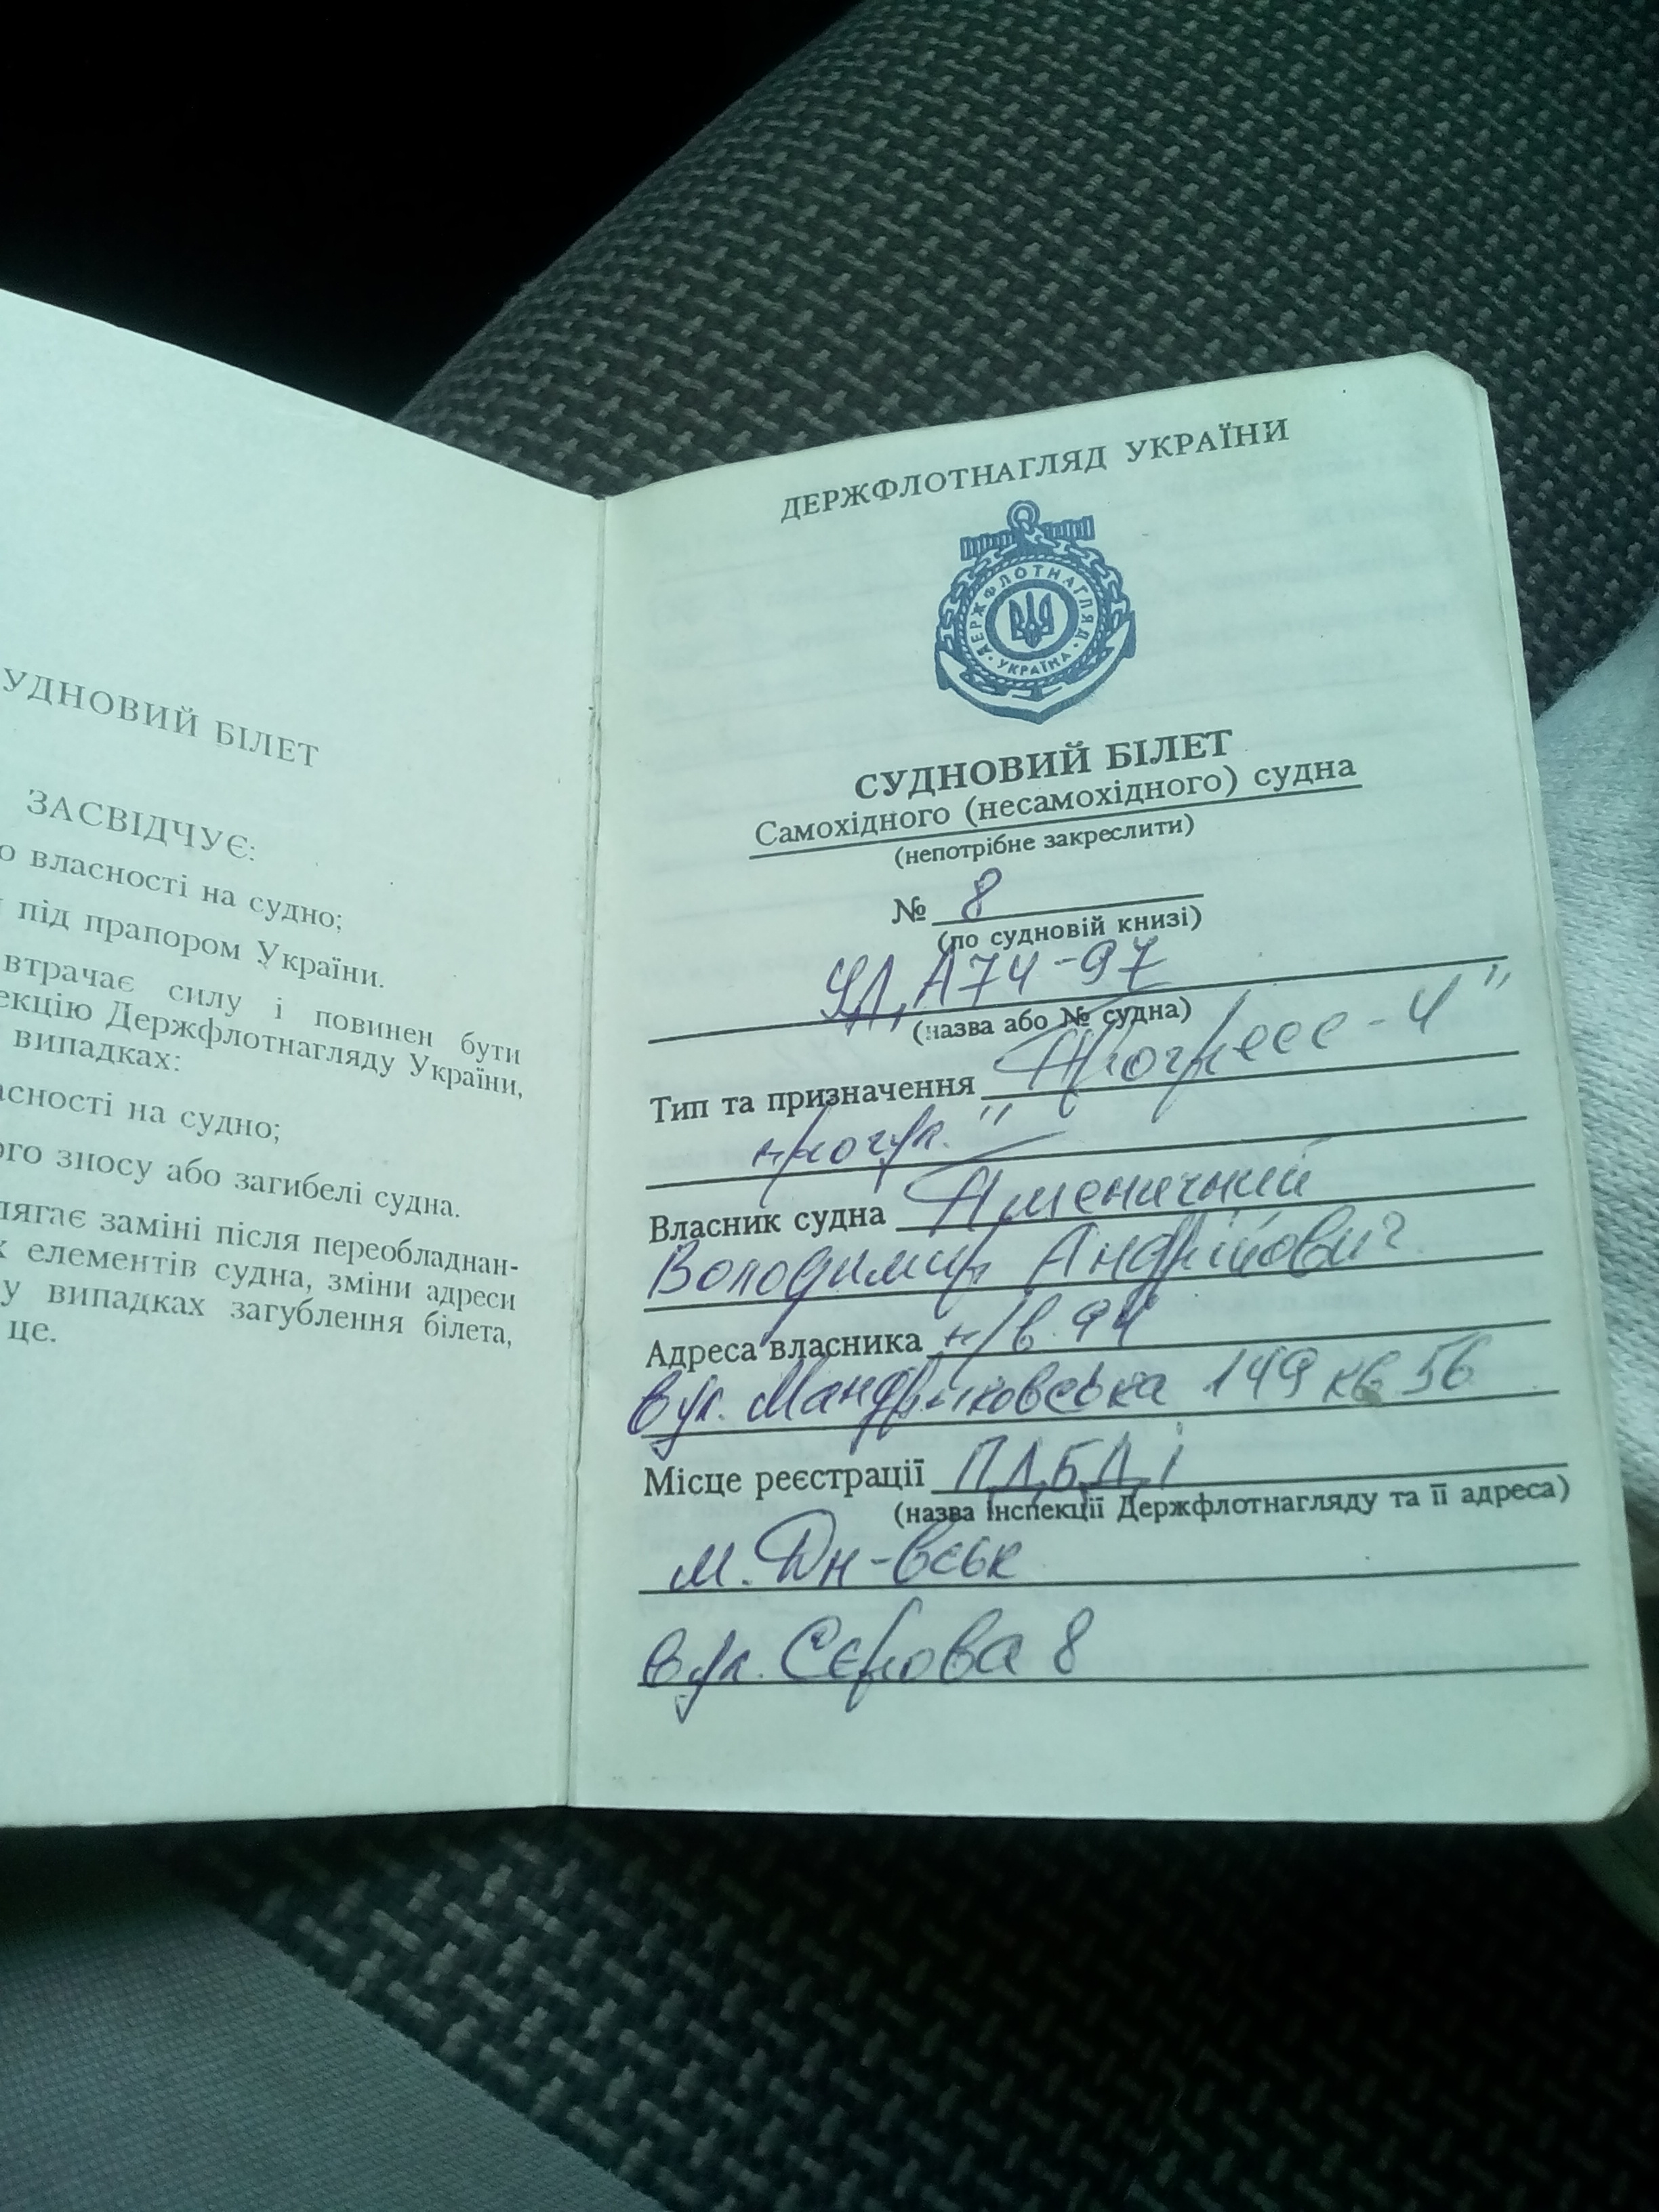 УДНОВИЙ БІЛЕТ
ЗАСВІДЧУЄ:
о власності на судно;
під прапором України.
втрачає силу і повинен бути
екцію Держфлотнагляду України,
випадках:
асності на судно;
ого зносу або загибелі судна.
лягає заміні після переобладнан-
х елементів судна, зміни адреси
у випадках загублення білета,
це.
ДЕРЖФЛОТНАГЛЯД УКРАЇНИ
ДЕРЖФЛОТНАГЛЯД
УКРАЇНА
СУДНОВИЙ БІЛЕТ
Самохідного (несамохідного) судна
(непотрібне закреслити)
№ 8
(по судновій книзі)
А74-97
(назва або № судна)
Тип та призначення "Прогресс-4"
прогул."
Власник судна Пшеничний
Володимир Андрійович
Адреса власника н/в. 94
вул. Мандриковська 149 кв 56
Місце реєстрації П.Д.Б.Д.і
(назва Інспекції Держфлотнагляду та її адреса)
м. Дн-вськ
вул. Сєрова 8